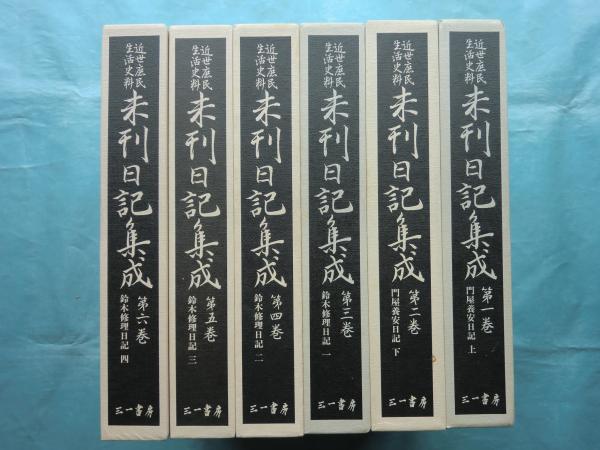 近世庶民
生活史料
未刊日記集成
第一巻
門屋養安日記 上
三一書房
近世庶民
生活史料
未刊日記集成
第二巻
門屋養安日記 下
三一書房
近世庶民
生活史料
未刊日記集成
第三巻
鈴木修理日記 一
三一書房
近世庶民
生活史料
未刊日記集成
第四巻
鈴木修理日記 二
三一書房
近世庶民
生活史料
未刊日記集成
第五巻
鈴木修理日記 三
三一書房
近世庶民
生活史料
未刊日記集成
第六巻
鈴木修理日記 四
三一書房